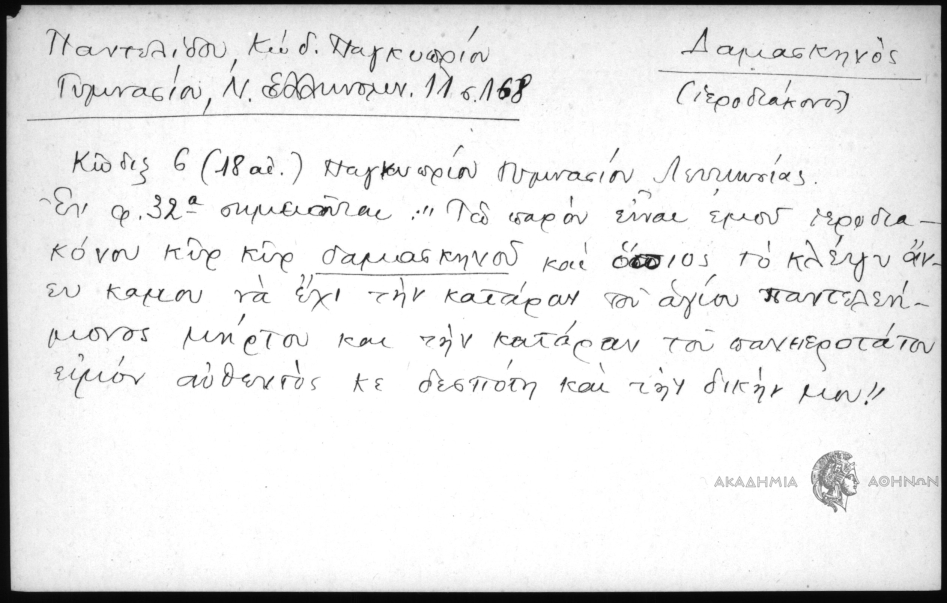 Παντελίδου, Κώδ. Παγκυπρίου
Δαμασκηνὸς
Γυμνασίου, Ν. Ἑλληνομν. 11 σ. 168
(ἱεροδιάκονος)
Κῶδιξ 6 (18 αἰ.) Παγκυπρίου Γυμνασίου Λευκωσίας.
Ἐν φ. 32α σημειοῦται: "Τὸ παρὸν εἶναι ἐμοῦ ἱεροδια-
κόνου κῦρ κῦρ δαμασκηνοῦ καὶ ὅποιος τὸ κλέψυ ἄν-
ευ καμου νὰ ἔχι τὴν κατάραν τοῦ ἁγίου παντελεή-
μονος μήρτου και τὴν κατάραν τοῦ πανιεροτάτου
εἰμόν αὐθεντὸς κε δεσπότη καὶ τὴν δικήν μου"
ΑΚΑΔΗΜΙΑ ΑΘΗΝΩΝ